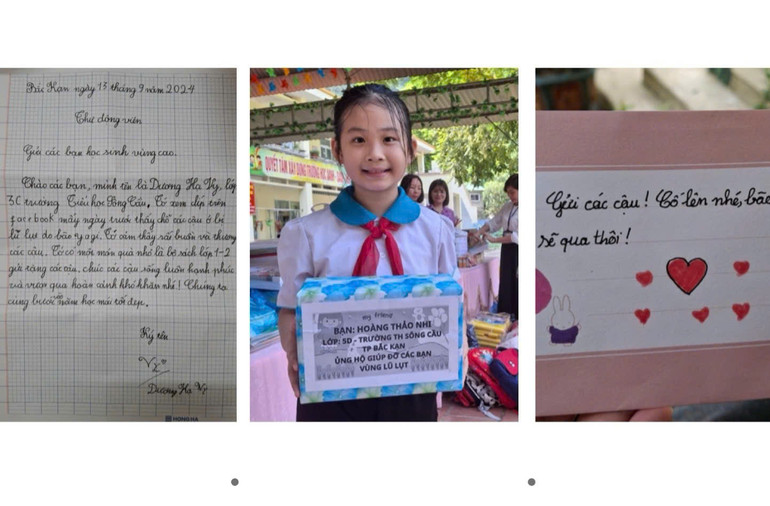 Bắc Kạn ngày 13 tháng 9 năm 2024
Thư động viên
Gửi các bạn học sinh vùng cao.
Chào các bạn, mình tên là Dương Hà Vy, lớp
3C trường Tiểu học Sông Cầu, Tớ xem clip trên
facebook mấy ngày trước thấy chỗ các cậu ở bị
lũ lụt do bão yagi. Tớ cảm thấy rất buồn và thương
các cậu. Tớ có một món quà nhỏ là bộ sách lớp 1-2
gửi tặng các cậu, chúc các cậu sống luôn hạnh phúc
và vượt qua hoàn cảnh khó khăn nhé! Chúng ta
cùng bước vào năm học mới tốt đẹp.
Ký tên
Vy
Dương Hà Vy
HONG HA
QUYẾT TÂM XÂY DỰNG TRƯỜNG HỌC
my friend
BẠN: HOÀNG THẢO NHI
LỚP: 5D - TRƯỜNG TH SÔNG CẦU
TP BẮC KẠN
ỦNG HỘ GIÚP ĐỠ CÁC BẠN
VÙNG LŨ LỤT
Gửi các cậu! Cố lên nhé, bão
sẽ qua thôi!